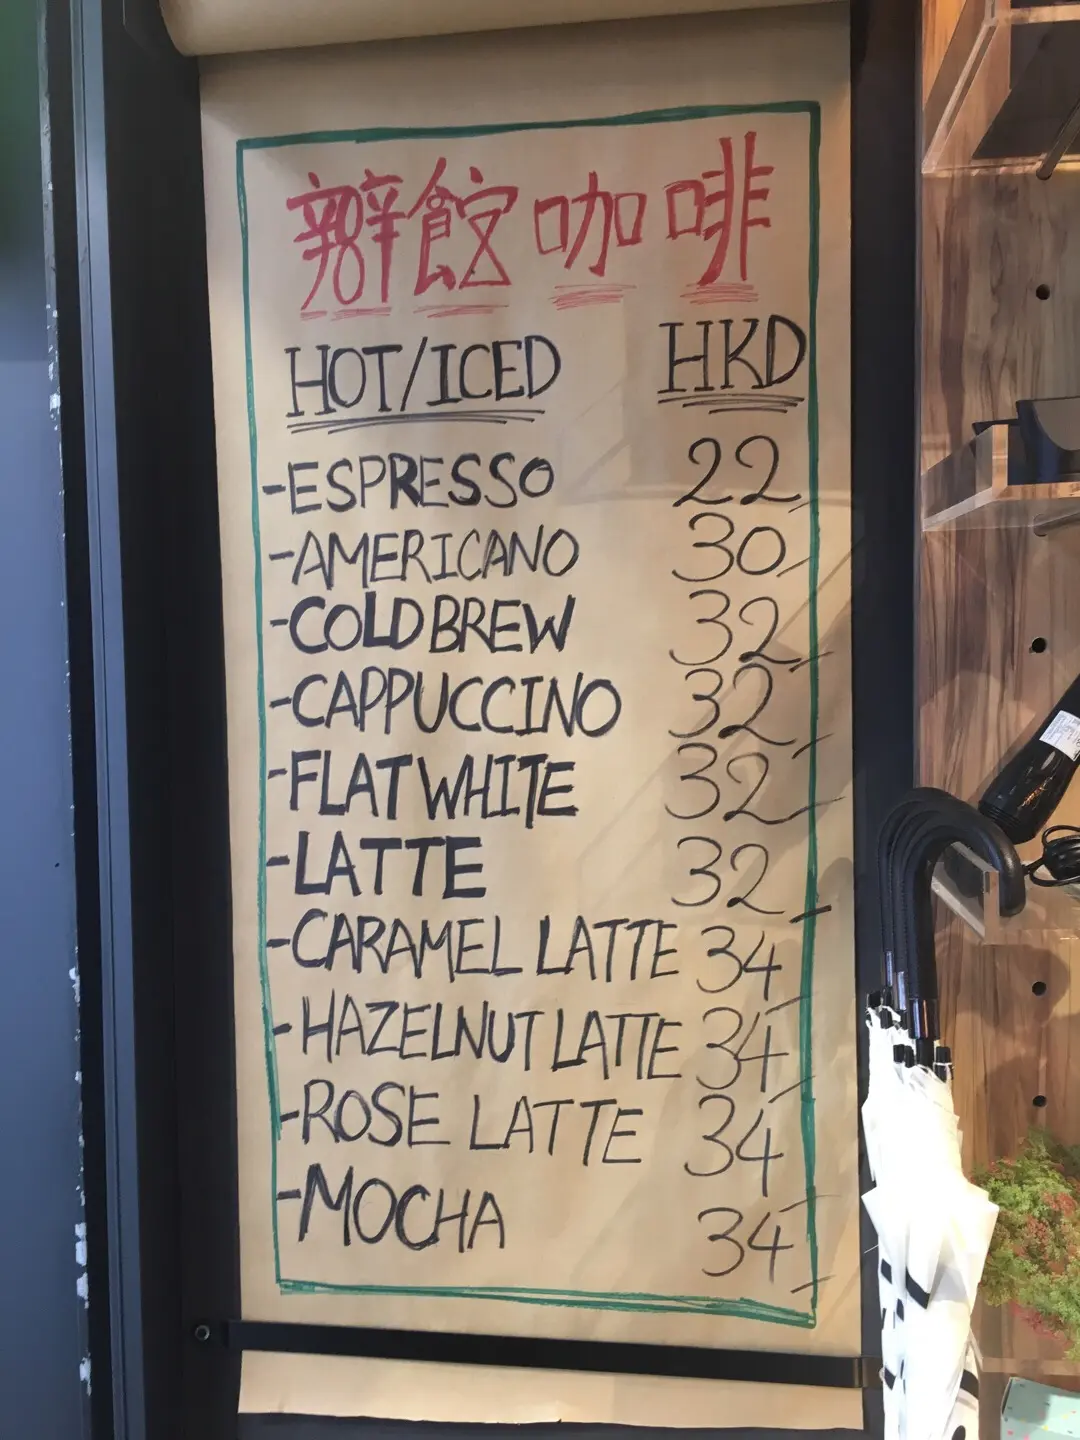 辦館咖啡
HOT/ICED HKD
-ESPRESSO 22
-AMERICANO 30
-COLD BREW 32
-CAPPUCCINO 32
-FLAT WHITE 32
-LATTE 32
-CARAMEL LATTE 34
-HAZELNUT LATTE 34
-ROSE LATTE 34
-MOCHA 34